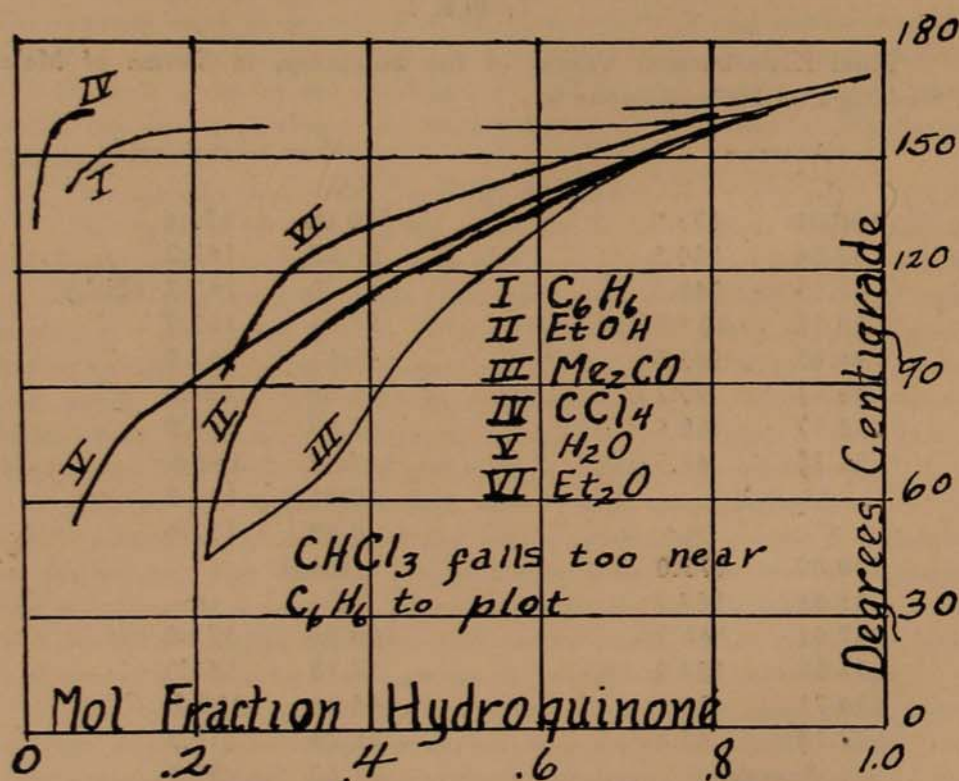 180
150
120
90
60
30
0
Degrees Centigrade
IV
I
VI
V
II
III
I C₆H₆
II EtOH
III Me₂CO
IV CCl₄
V H₂O
VI Et₂O
CHCl₃ falls too near
C₆H₆ to plot
Mol Fraction Hydroquinone
0 .2 .4 .6 .8 1.0